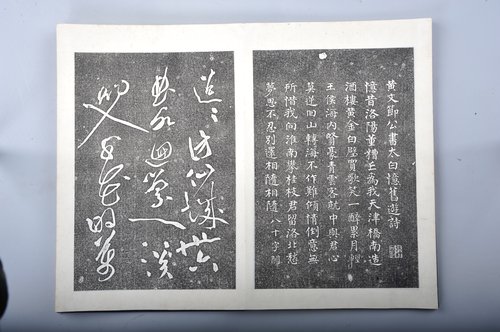 黄文節公書太白憶舊遊詩
憶昔洛陽董糟丘為我天津橋南造
酒樓黃金白璧買歌笑一醉累月輕
王侯海内賢豪青雲客就中與君心
莫逆回山轉海不作難傾情倒意無
所惜我向淮南攀桂枝君留洛北愁
夢思不忍別還相隨相隨八十字闕
迢〻訪仙城卅六
曲水迴縈一溪
初入千花明萬